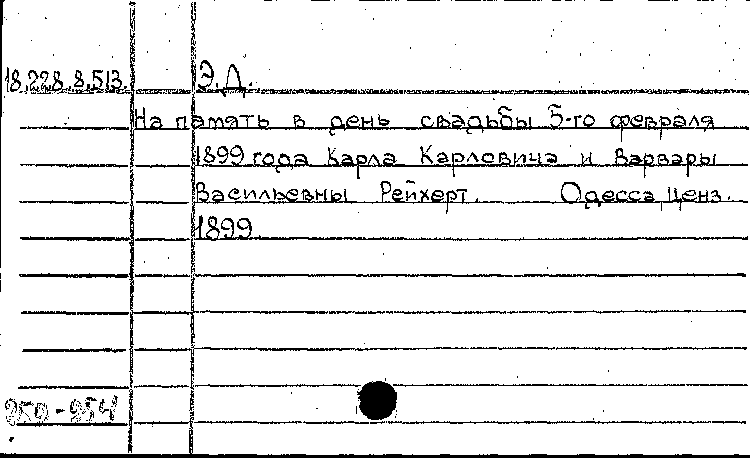 18.228.8.513. Э. Д.
На память в день свадьбы 5-го февраля
1899 года Карла Карловича и Варвары
Васильевны Рейхерт. Одесса, ценз.
1899.
250-254